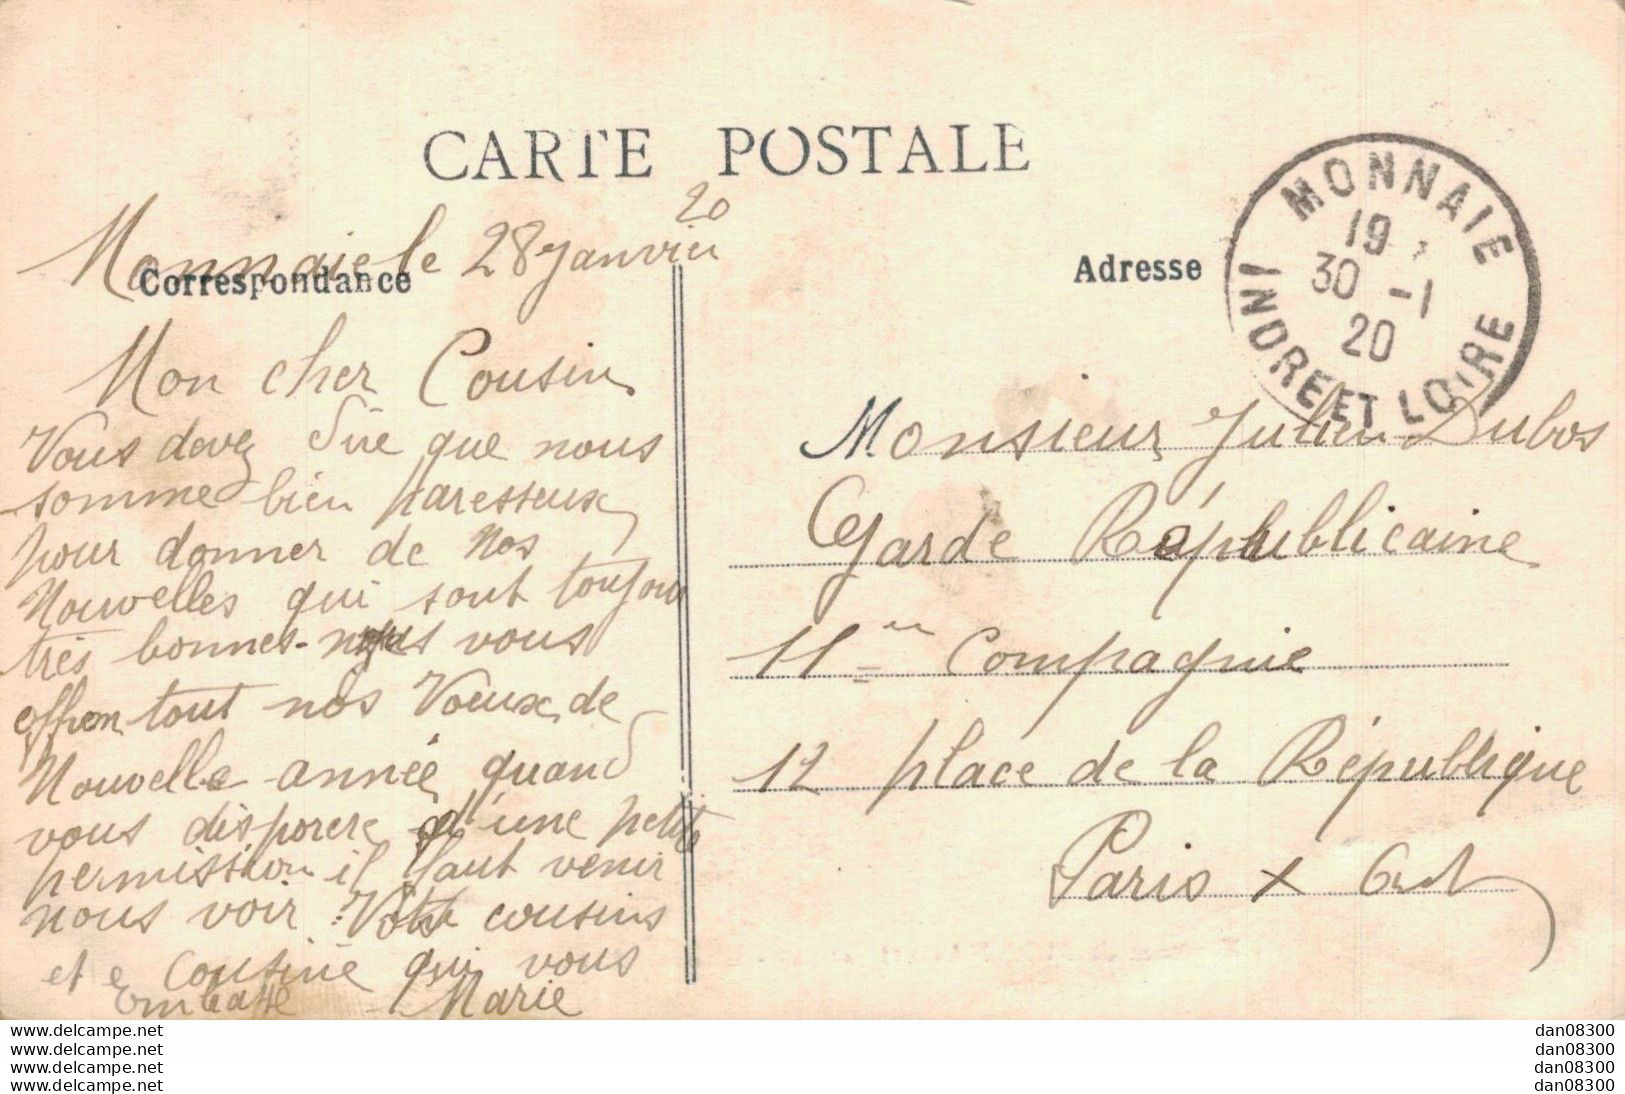 CARTE POSTALE
Monnaie le 28 Janvier 20
Correspondance
Mon cher Cousin
Vous devez dire que nous
somme bien paresseux
pour donner de nos
Nouvelles qui sont toujour
très bonnes - nous vous
offron tout nos Voeux de
Nouvelle année quand
vous disposere d'une petite
permission il faut venir
nous voir Votre cousins
et cousine qui vous
embasse Marie
Adresse
MONNAIE
19
30 -1
20
INDRE ET LOIRE
Monsieur Julien Dubos
Garde Républicaine
11 Compagnie
12 place de la République
Paris x
www.delcampe.net
www.delcampe.net
www.delcampe.net
www.delcampe.net
dan08300
dan08300
dan08300
dan08300